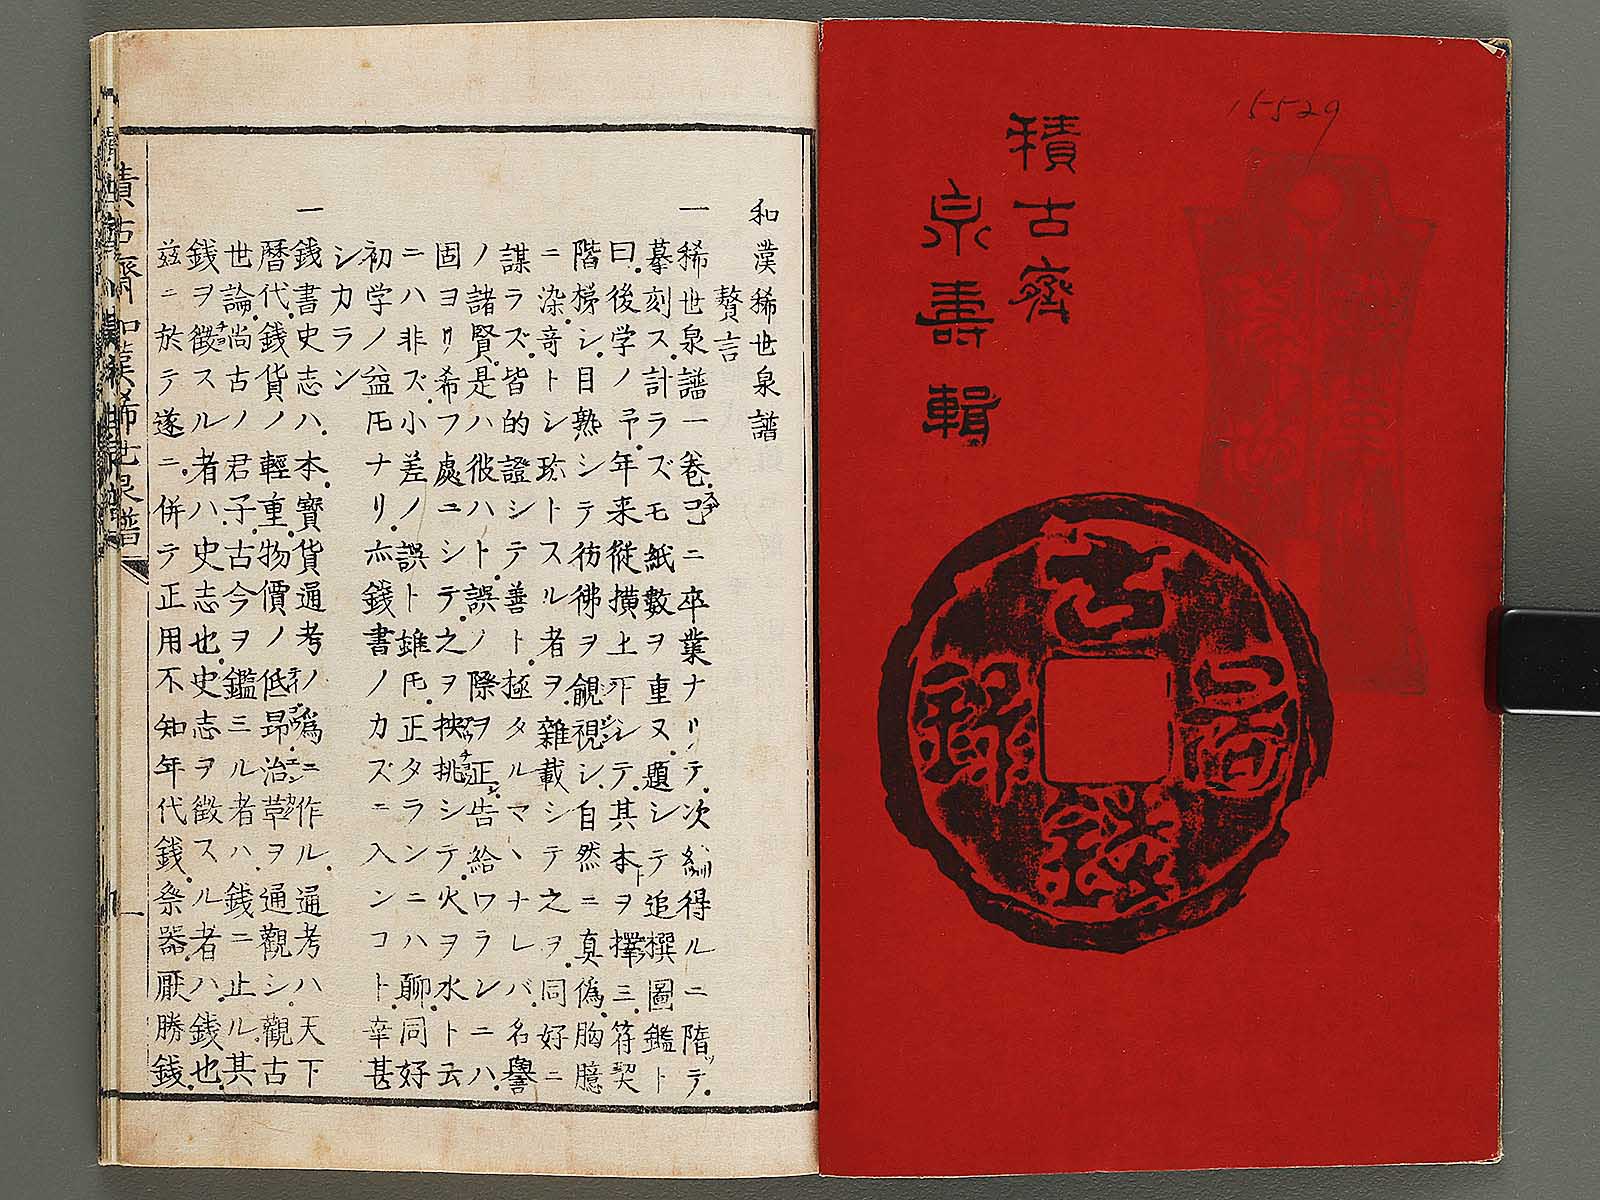 15529
積古齋
泉壽輯
古昌錢錄
和漢稀世泉譜
贅言
一稀世泉譜一卷已ニ卒業ナリテ次𫄧得ルニ隋テ
摹刻ス計ラズモ紙數ヲ重又題シテ追撰圖鑑ト
曰後学ノ予年来従横上下シテ其本ヲ擇三符契
階梯シ目熟シテ彷彿ヲ覦視シ自然ニ真偽胸臆
ニ染奇トシ珎トスル者ヲ雜載シテ之ヲ同好ニ
謀ラズ皆的證シテ善ト極タルマヽナレバ名譽
ノ諸賢是ハ彼ハト誤ノ際ヲ正告給ワランニハ
固ヨリ希フ處ニシテ之ヲ抉挑シテ火ヲ水ト云
ニハ非ズ小差ノ誤ト雖𪜈正タランニハ聊同好
初学ノ益𪜈ナリ亦錢書ノカズニ入ンコト幸甚
シカラン
一錢書史志ハ本寶貨通考ノ為ニ作ル通考ハ天下
暦代錢貨ノ輕重物價ノ低昂治草ヲ通觀シ觀古
世論尚古ノ君子古今ヲ鑑三ル者ハ錢ニ止ル其
錢ヲ徴スル者ハ史志也史志ヲ徴スル者ハ錢也
玆ニ於テ遂ニ併テ正用不知年代錢祭器厭勝錢
積古齋和漢稀世泉譜
一